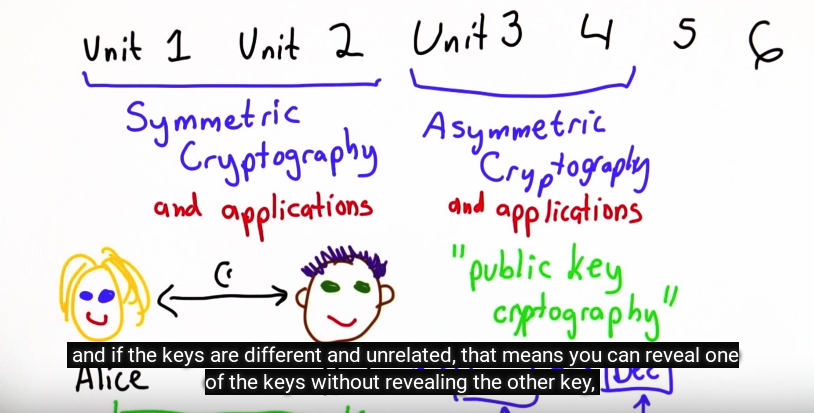 Unit 1 Unit 2 Unit 3 4 5 6
Symmetric
Cryptography
and applications
Asymmetric
Cryptography
and applications
"public key
cryptography"
and if the keys are different and unrelated, that means you can reveal one
of the keys without revealing the other key,
Alice
Dec